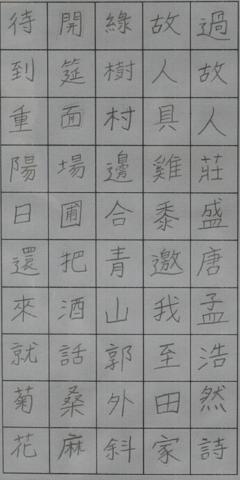 過故人莊盛唐孟浩然詩
故人具雞黍邀我至田家
綠樹村邊合青山郭外斜
開筵面場圃把酒話桑麻
待到重陽日還來就菊花